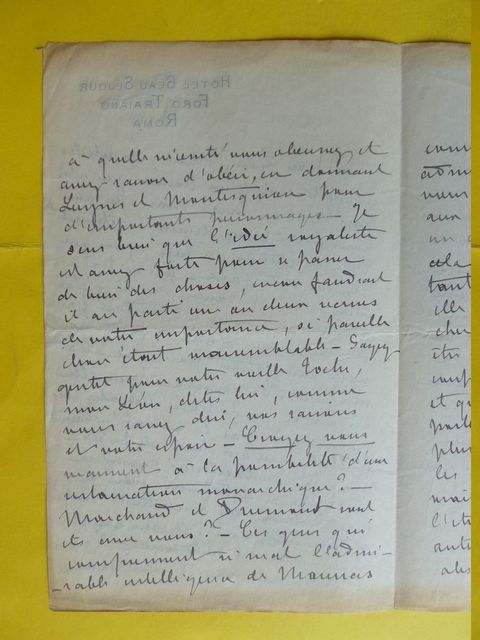 HOTEL BEAU SÉJOUR
FORO TRAIANO
ROMA
à quelle nécessité vous obéissez et
avez raison d'obéir, en donnant
Luynes et Montesquiou pour
d'importants personnages - Je
sens bien que l'idée royaliste
est assez forte pour se passer
de bien des choses, encore faudrait
il au parti un ou deux
de votre importance, si pareille
chose était - Soyez
gentil pour votre vieille
mon Léon, dites lui, comme
vous savez dire, vos raisons
et votre espoir - Croyez vous
vraiment à la possibilité d'une
restauration monarchique? -
Marchand et Drumont sont
ils avec vous? - Ces gens qui
comprennent si mal l'admi-
-rable intelligence de Maurras
com
adm
vous
aux
cela
tant
elle
cher
et qu
plus
les
mais